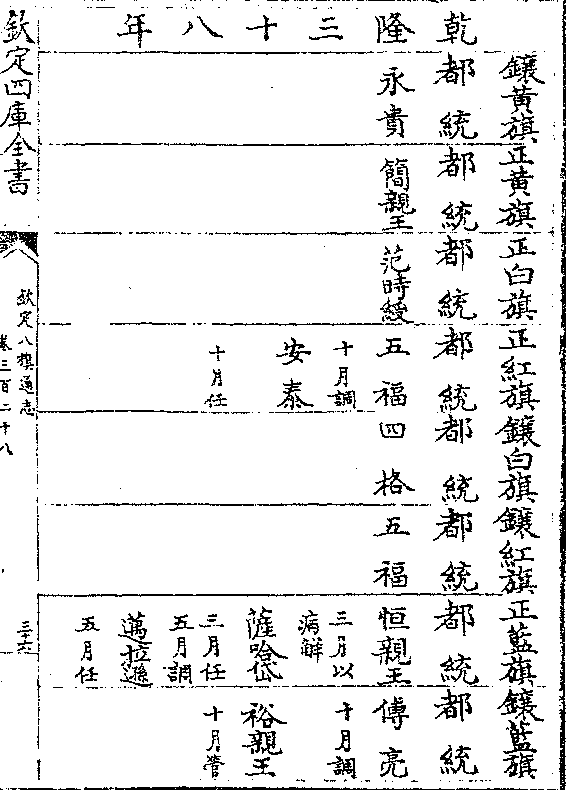 乾隆三十八年
鑲黃旗 正黃旗 正白旗 正紅旗 鑲白旗 鑲紅旗 正藍旗 鑲藍旗
都統 都統 都統 都統 都統 都統 都統 都統
永貴 簡親王 范時綬 五福 四格 五福 恒親王 傅亮
十月調 三月以 十月調
病辭
安泰 薩哈岱 裕親王
十月任 三月任 十月管
五月調
邁拉遜
五月任
欽定四庫全書
欽定八旗通志
卷三百二十八
三十六